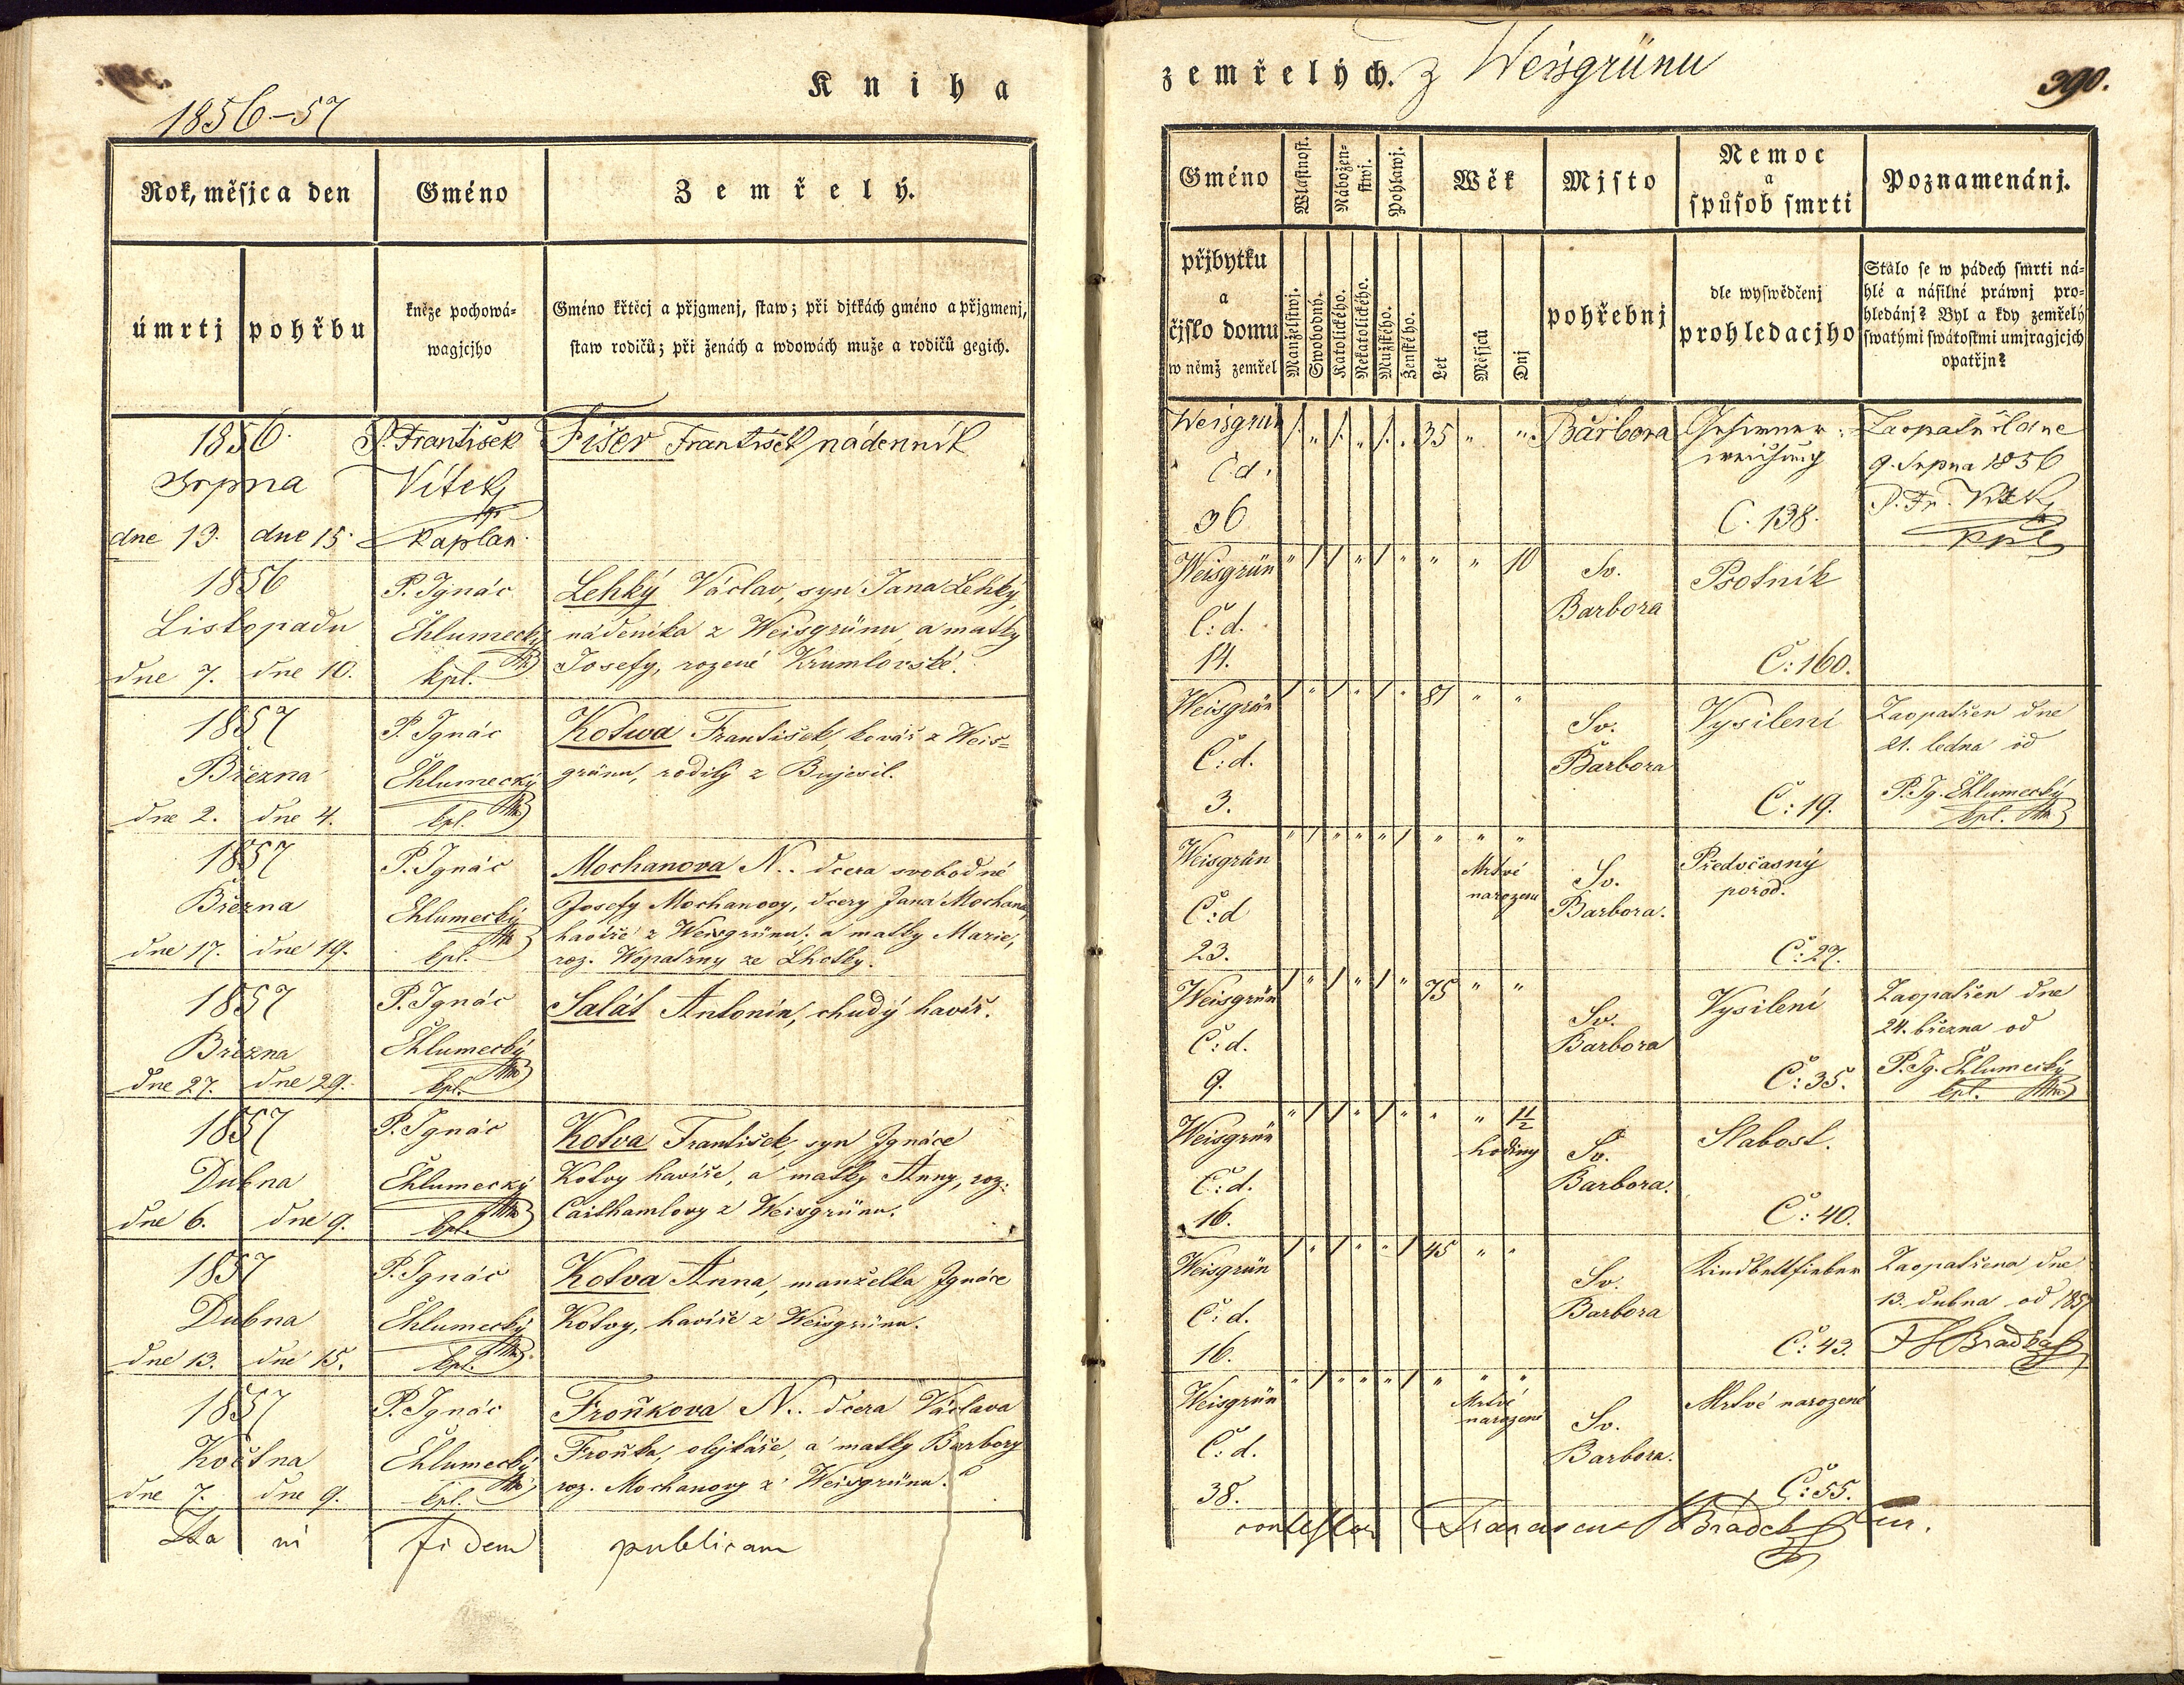 1856–57
Kniha
Rok, měsjc a den
Gméno
Zemřelý.
úmrtj
pohřbu
kněze pochowá-
wagjcjho
Gméno křtěcj a přjgmenj, staw; při djtkách gméno a přjgmenj,
staw rodičů; při ženách a wdowách muže a rodičů gegich.
1856. P. František Fišer František nádenník
Srpna Vítek
dne 13. dne 15. kaplan
1856 P. Ignác Lehký Václav, syn Jana Lehký,
Listopadu Chlumecký nádeníka z Weisgrünu, a matky
dne 7. dne 10. kpl. Josefy, rozené Krumlovské.
1857 P. Ignác Kotwa František, kovář z Weis=
Března Chlumecký grünu, rodilý z Bujesil.
dne 2. dne 4. kpl.
1857 P. Ignác Mochanova N.. dcera svobodné
Března Chlumecký Josefy Mochanovy, dcery Jana Mochana,
havíře z Weisgrünu, a matky Marie,
dne 17. dne 19. kpl. roz. Kopatzny ze Lhotky.
1857 P. Ignác Salát Antonín, chudý havíř.
Března Chlumecký
dne 27. dne 29. kpl.
1857 P. Ignác Kotva František, syn Ignáce
Dubna Chlumecký Kotvy havíře, a matky Anny, roz.
dne 6. dne 9. kpl. z Weisgrünu.
1857 P. Ignác Kotva Anna, manželka Ignáce
Dubna Chlumecký Kotvy, havíře z Weisgrünu.
dne 13. dne 15. kpl.
1857 P. Ignác Froňkova N.. dcera Václava
Května Chlumecký Froňka, olejkáře, a matky Barbory
dne 7. dne 9. kpl. roz. Mochanovy z Weisgrünu.
Ita ni fidem publicam
zemřelých. z Weisgrünu
390.
Gméno
Wlastnost.
Nábožen-
stwj.
Pohlawj.
Wěk
Mjsto
Nemoc
a
spůsob smrti
Poznamenánj.
přjbytku
a
čjslo domu
w němž zemřel
Manželstwj.
Swobodný.
Katolického.
Nekatolického.
Mužského.
Ženského.
Let
Měsjců
Dnj
pohřebnj
dle wyswědčenj
prohledacjho
Stalo se w pádech smrti ná-
hlé a násilné práwnj pro-
hledánj? Byl a kdy zemřelý
swatými swátostmi umjragjcjch
opatřjn?
Weisgrün /. „ /. „ /. „ 35 „ „ Barbora Zaopatřil dne
Čd. 9. Srpna 1856
36 Č. 138. P. Fr. Vítek
kpl
Weisgrün „ / / „ / „ „ „ 10 Sv. Psotník
Č: d. Barbora
14. Č: 160.
Weisgrün / „ / „ / „ 81 „ „ Sv. Vysilení Zaopatřen dne
Č: d. Barbora 21. ledna od
3. Č: 19. P. Ig. Chlumecký
kpl.
Weisgrün „ / „ „ „ / „ „ „ Mrtvé Sv. Předčasný
Č: d narozena Barbora. porod.
23. Č: 27.
Weisgrün / „ / „ / „ 75 „ „ Sv. Vysilení Zaopatřen dne
Č: d. Barbora 24. března od
9. Č: 35. P. Ig. Chlumecký
kpl.
Weisgrün „ / / „ / „ „ „ 1/2 hodiny Sv. Slabost.
Č: d. Barbora.
16. Č: 40.
Weisgrün / „ / „ „ / 45 „ „ Sv. Kindbettfieber Zaopatřena dne
Č: d. Barbora 13. dubna od 1857
16. Č: 43.
Weisgrün „ / „ „ „ / „ „ „ Mrtvé Sv. Mrtvé narozené
Č: d. narozené Barbora.
38. Č: 55.
contestor Franciscus